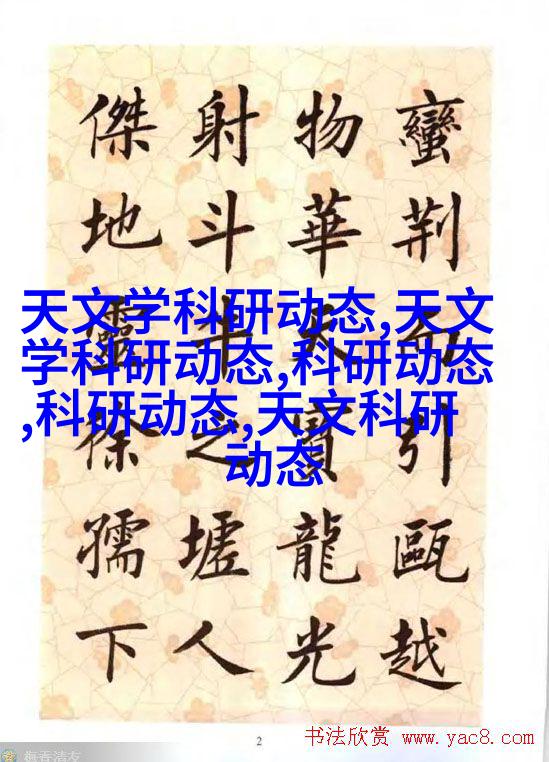 蠻荆而引甌越
物華天寶龍光
射斗牛之墟人
傑地靈徐孺下
天文学科研动态,天文
学科研动态,科研动态
,科研动态,天文科研
动态
2
书法欣赏 www.yac8.com